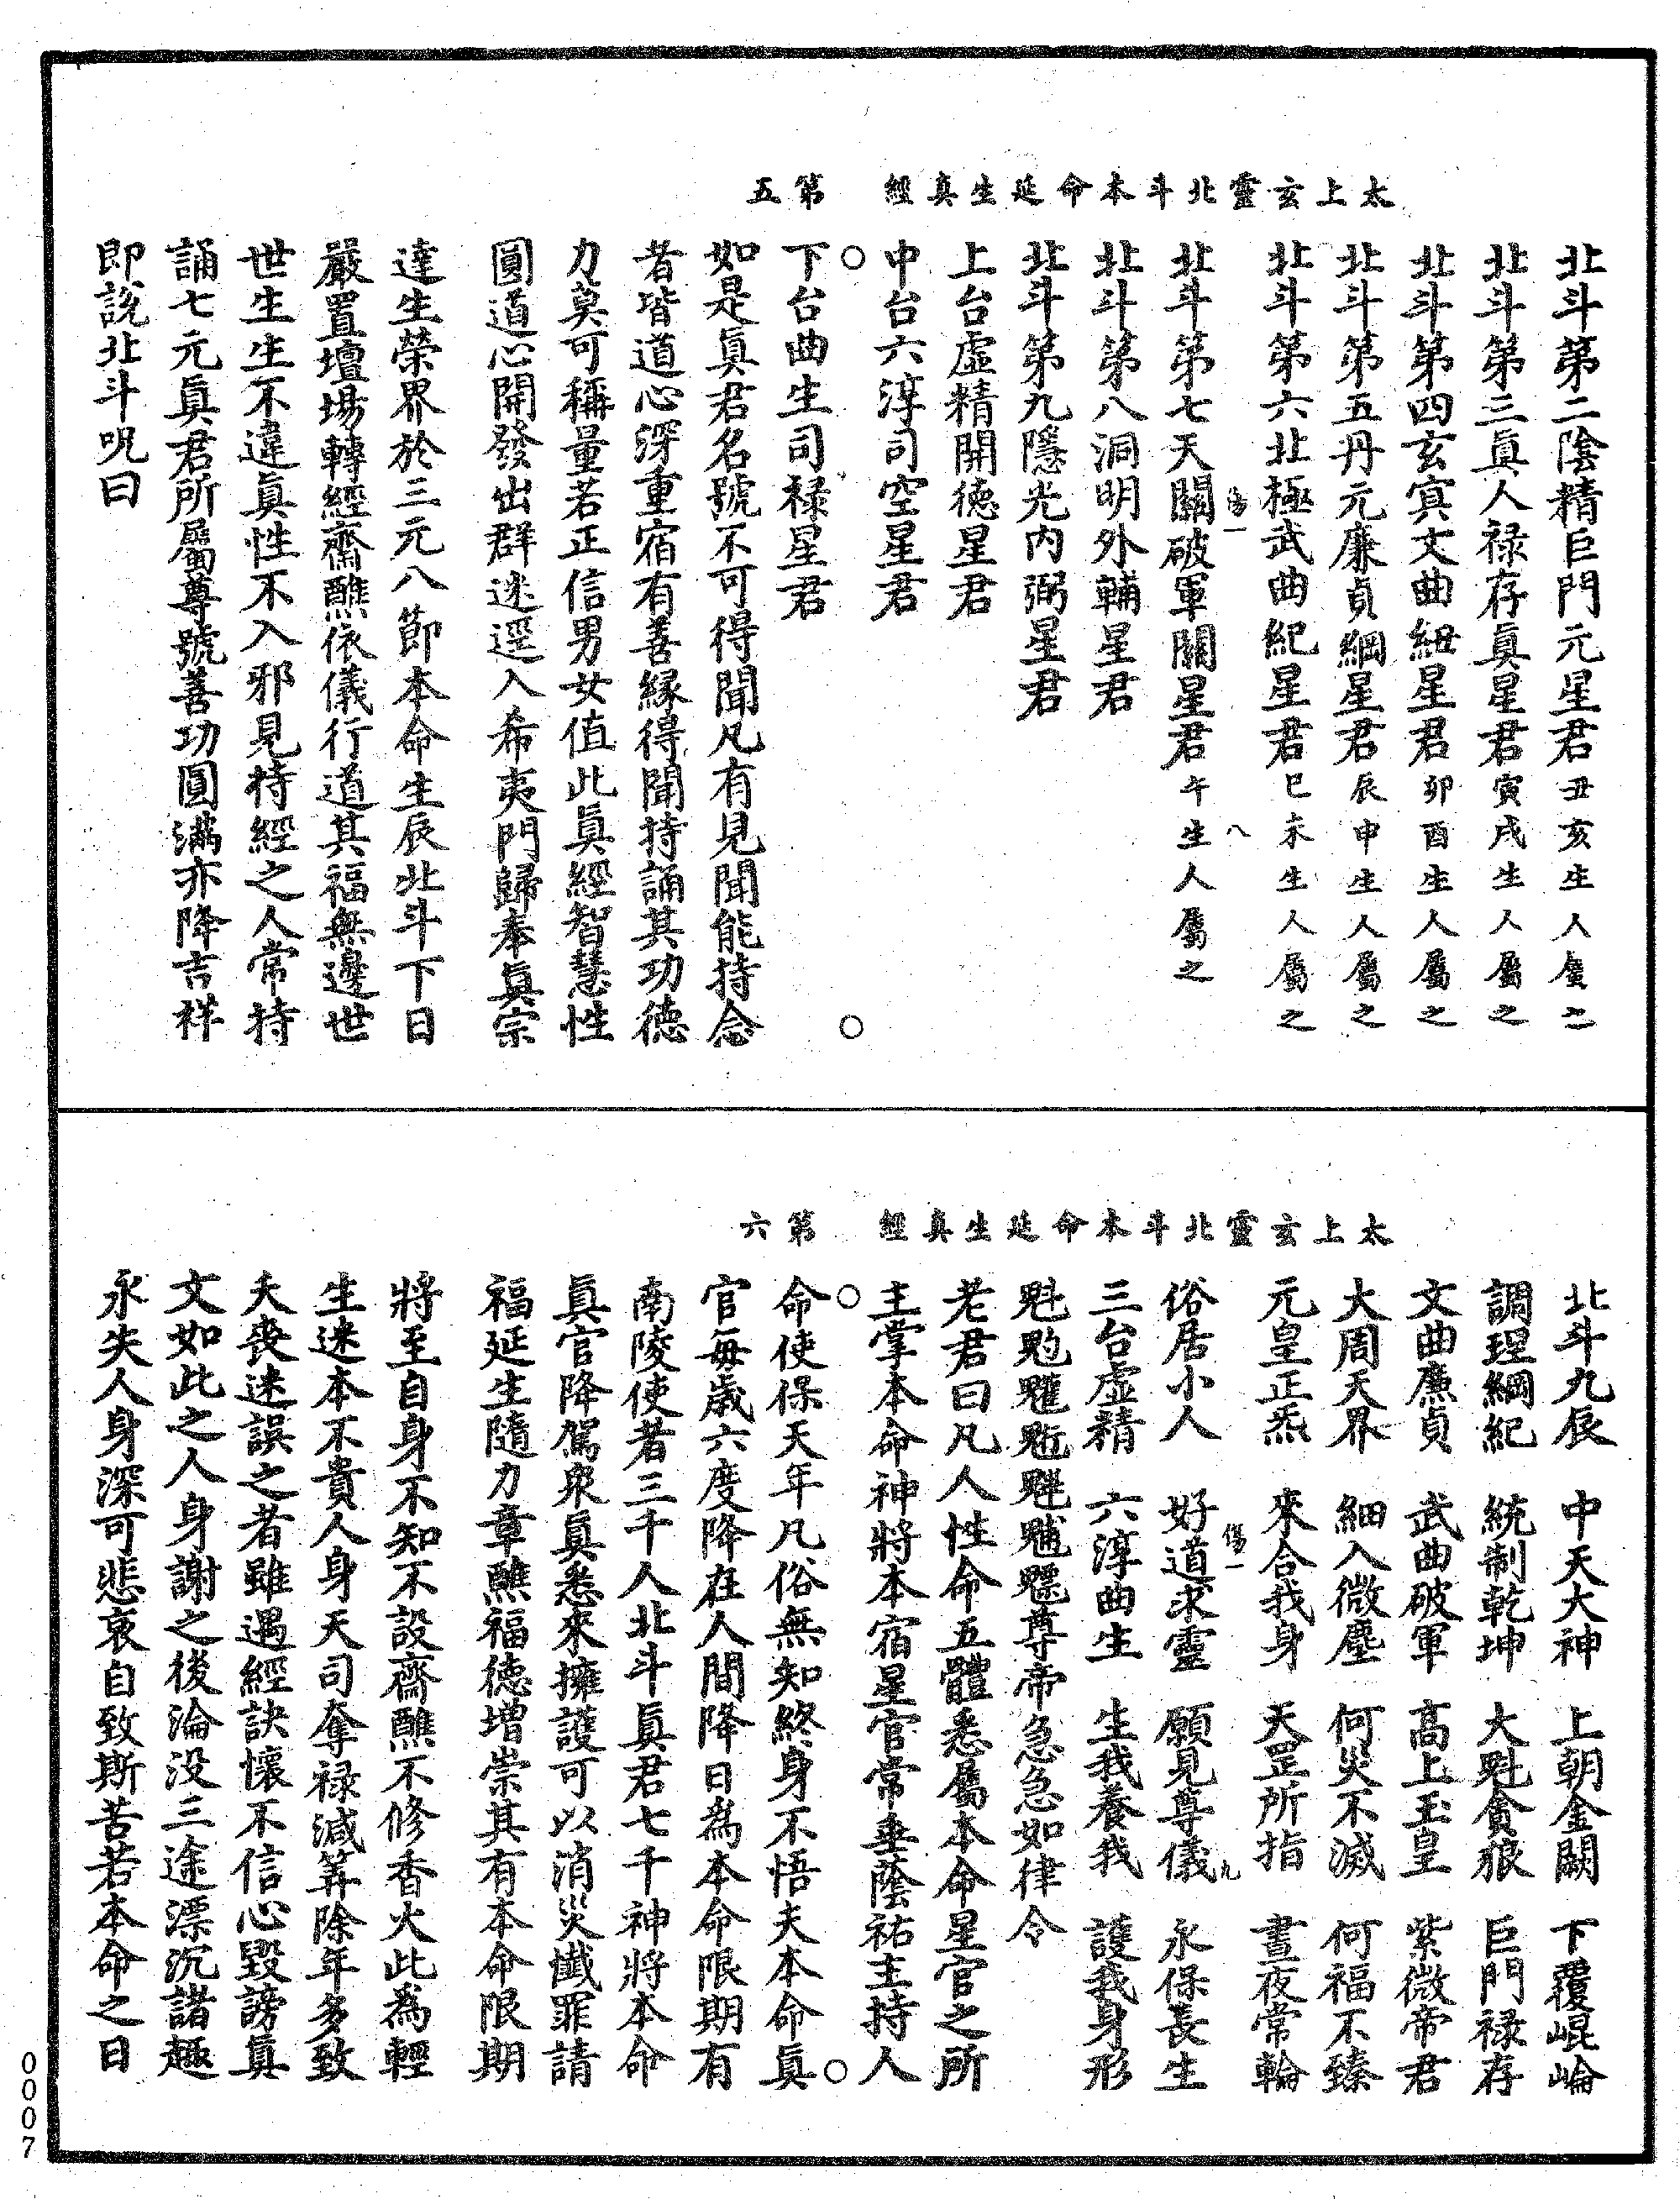 太上玄靈北斗本命延生真經　第五
北斗第二陰精巨門元星君丑亥生人屬之
北斗第三真人禄存真星君寅戌生人屬之
北斗第四玄冥文曲紐星君卯酉生人屬之
北斗第五丹元廉貞綱星君辰申生人屬之
北斗第六北極武曲紀星君巳未生人屬之
傷一　八
北斗第七天關破軍關星君午生人屬之
北斗第八洞明外輔星君
北斗第九隱光内弼星君
上台虛精開德星君
中台六淳司空星君
下台曲生司禄星君
如是眞君名號不可得聞凡有見聞能持念
者皆道心深重宿有善緣得聞持誦其功德
力莫可稱量若正信男女值此眞經智慧性
圓道心開發出群迷逕入希夷門歸奉眞宗
達生榮界於三元八節本命生辰北斗下日
嚴置壇場轉經齋醮依儀行道其福無邊世
世生生不違眞性不入邪見持經之人常持
誦七元眞君所屬尊號善功圓滿亦降吉祥
即說北斗呪曰
太上玄靈北斗本命延生真經　第六
北斗九辰　中天大神　上朝金闕　下覆崐崘
調理綱紀　統制乾坤　大魁貪狼　巨門禄存
文曲廉貞　武曲破軍　高上玉皇　紫微帝君
大周天界　細入微塵　何災不滅　何福不臻
元皇正炁　來合我身　天罡所指　晝夜常輪
傷一　九
俗居小人　好道求靈　願見尊儀　永保長生
三台虛精　六淳曲生　生我養我　護我身形
魁䰢䰡䰣魓䰤魒尊帝急急如律令
老君曰凡人性命五體悉屬本命星官之所
主掌本命神將本宿星官常垂蔭祐主持人
命使保天年凡俗無知終身不悟夫本命眞
官每歲六度降在人間降日為本命限期有
南陵使者三千人北斗眞君七千神將本命
眞官降駕衆眞悉來擁護可以消災懺罪請
福延生隨力章醮福德增崇其有本命限期
將至自身不知不設齋醮不修香火此為輕
生迷本不貴人身天司奪禄減筭除年多致
夭喪迷誤之者雖遇經訣懷不信心毀謗眞
文如此之人身謝之後淪没三途漂沉諸趣
永失人身深可悲哀自致斯苦若本命之日
00007